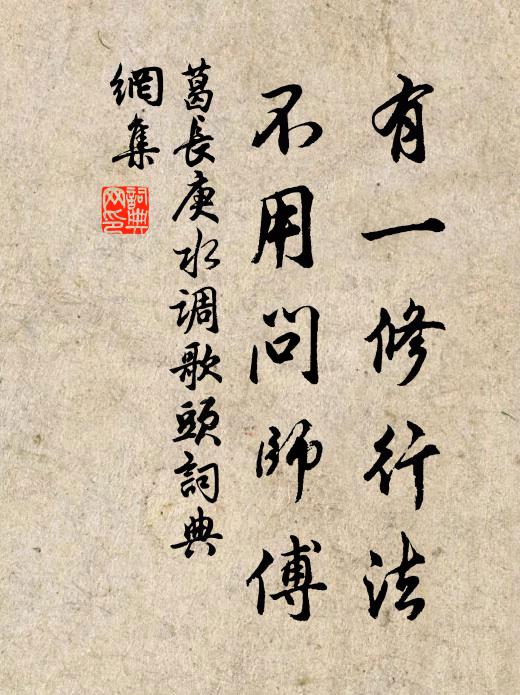 有一修行法
不用問師傅
葛長庚水調歌頭詞典
網集
詞典網印